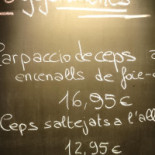 Carpaccio de ceps
encenalls de foie-
16,95€
Ceps saltejats a l'all
12.95€